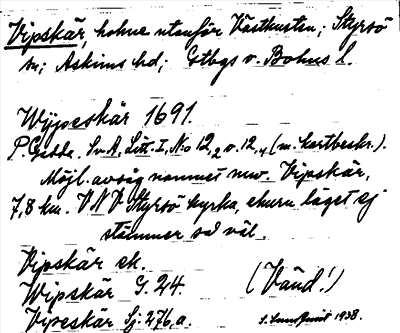 Vipskär, holme utanför Västkusten; Styrsö
sn; Askims hd; Gtbgs o. Bohus l.
Wijpeskär 1691.
P. Gedda. Sv. A. Litt. I, No 12,2 o. 12,4 (m. kartbeskr.).
Möjl. avsåg namnet nuv. Vipskär,
7,8 km. VNV Styrsö kyrka, ehuru läget ej
stämmer så väl.
Vipskär ek.
Wipskär G. 24. (Vänd!)
Vipeskär Sj. 276, a.
1938.